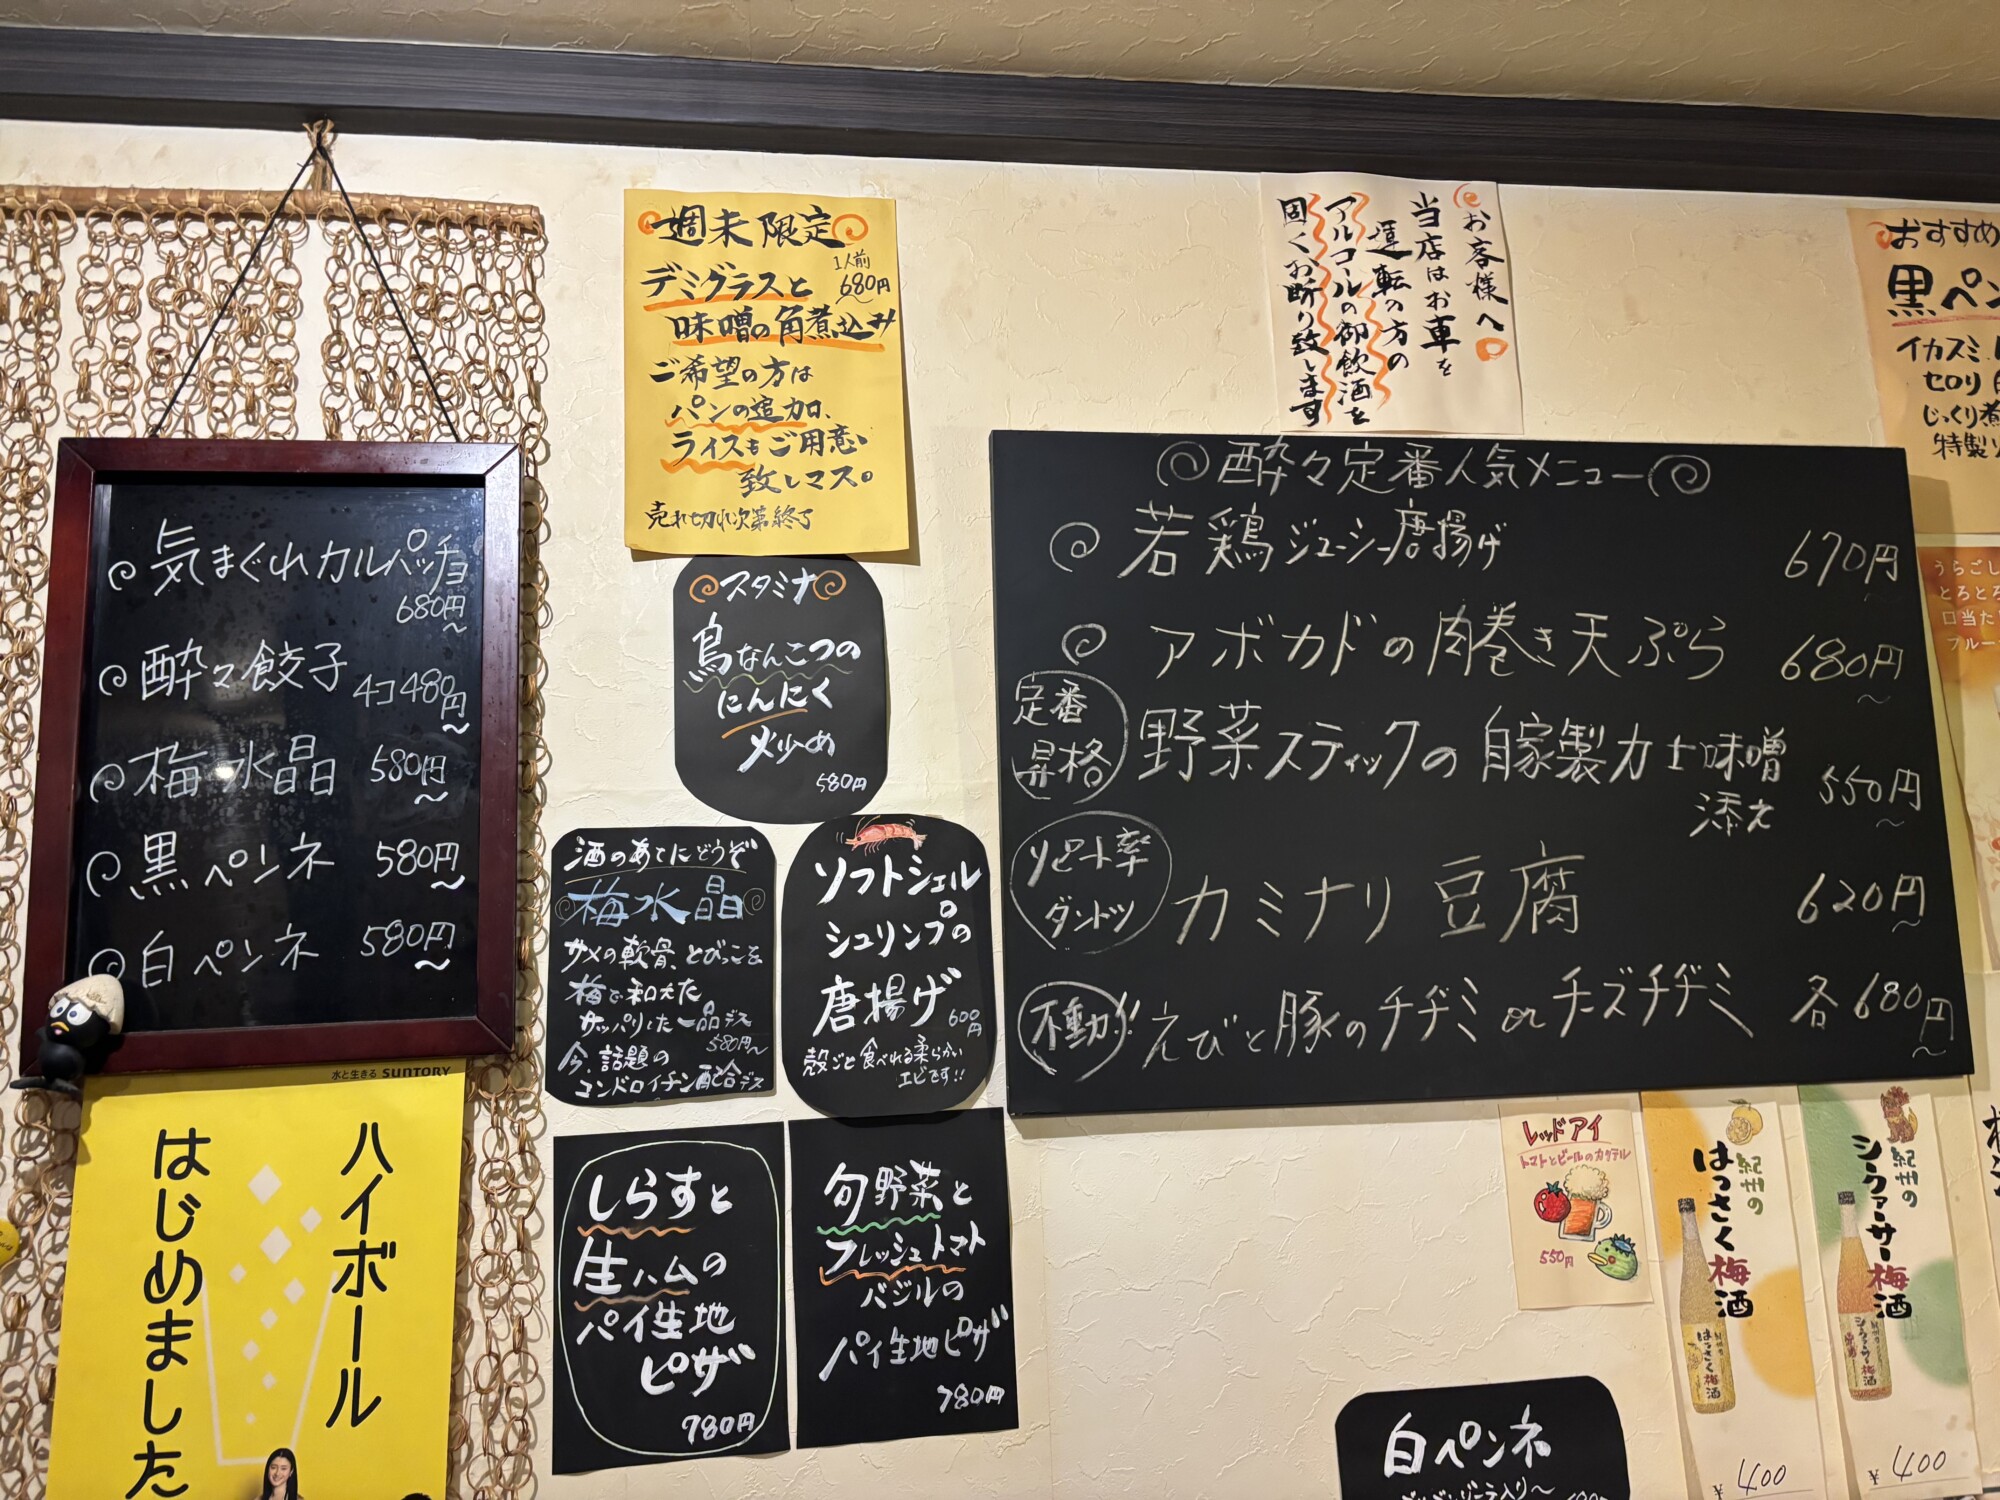 気まぐれカルパッチョ
680円～
酔々餃子 4コ480円～
梅水晶 580円～
黒ペンネ 580円～
白ペンネ 580円～
水と生きる SUNTORY
ハイボール
はじめました
週末限定
1人前
デミグラスと 680円
味噌の角煮込み
ご希望の方は
パンの追加、
ライスもご用意
致しマス。
売れ切れ次第終了
スタミナ
鳥なんこつの
にんにく
炒め
580円
酒のあてにどうぞ
梅水晶
サメの軟骨、とびっこを
梅で和えた
サッパリした一品デス
580円～
今、話題の
コンドロイチン配合デス
ソフトシェル
シュリンプの
唐揚げ
600円
殻ごと食べれる柔らかい
エビです!!
しらすと
生ハムの
パイ生地
ピザ
780円
旬野菜と
フレッシュトマト
バジルの
パイ生地ピザ
780円
お客様へ
当店はお車を
運転の方の
アルコールの御飲酒を
固くお断り致します
酔々定番人気メニュー
若鶏ジューシー唐揚げ 670円～
アボカドの肉巻き天ぷら 680円～
定番
昇格
野菜スティックの自家製力士味噌
添え 550円～
リピート率
ダントツ
カミナリ豆腐 620円～
不動!!
えびと豚のチヂミorチーズチヂミ 各680円～
おすすめ
黒ペン
イカスミ
セロリ
じっくり煮
特製
うらごし
とろとろ
口当た
フルー
レッドアイ
トマトとビールのカクテル
550円
紀州の
はっさく梅酒
¥400
紀州の
シークァーサー梅酒
¥400
白ペンネ